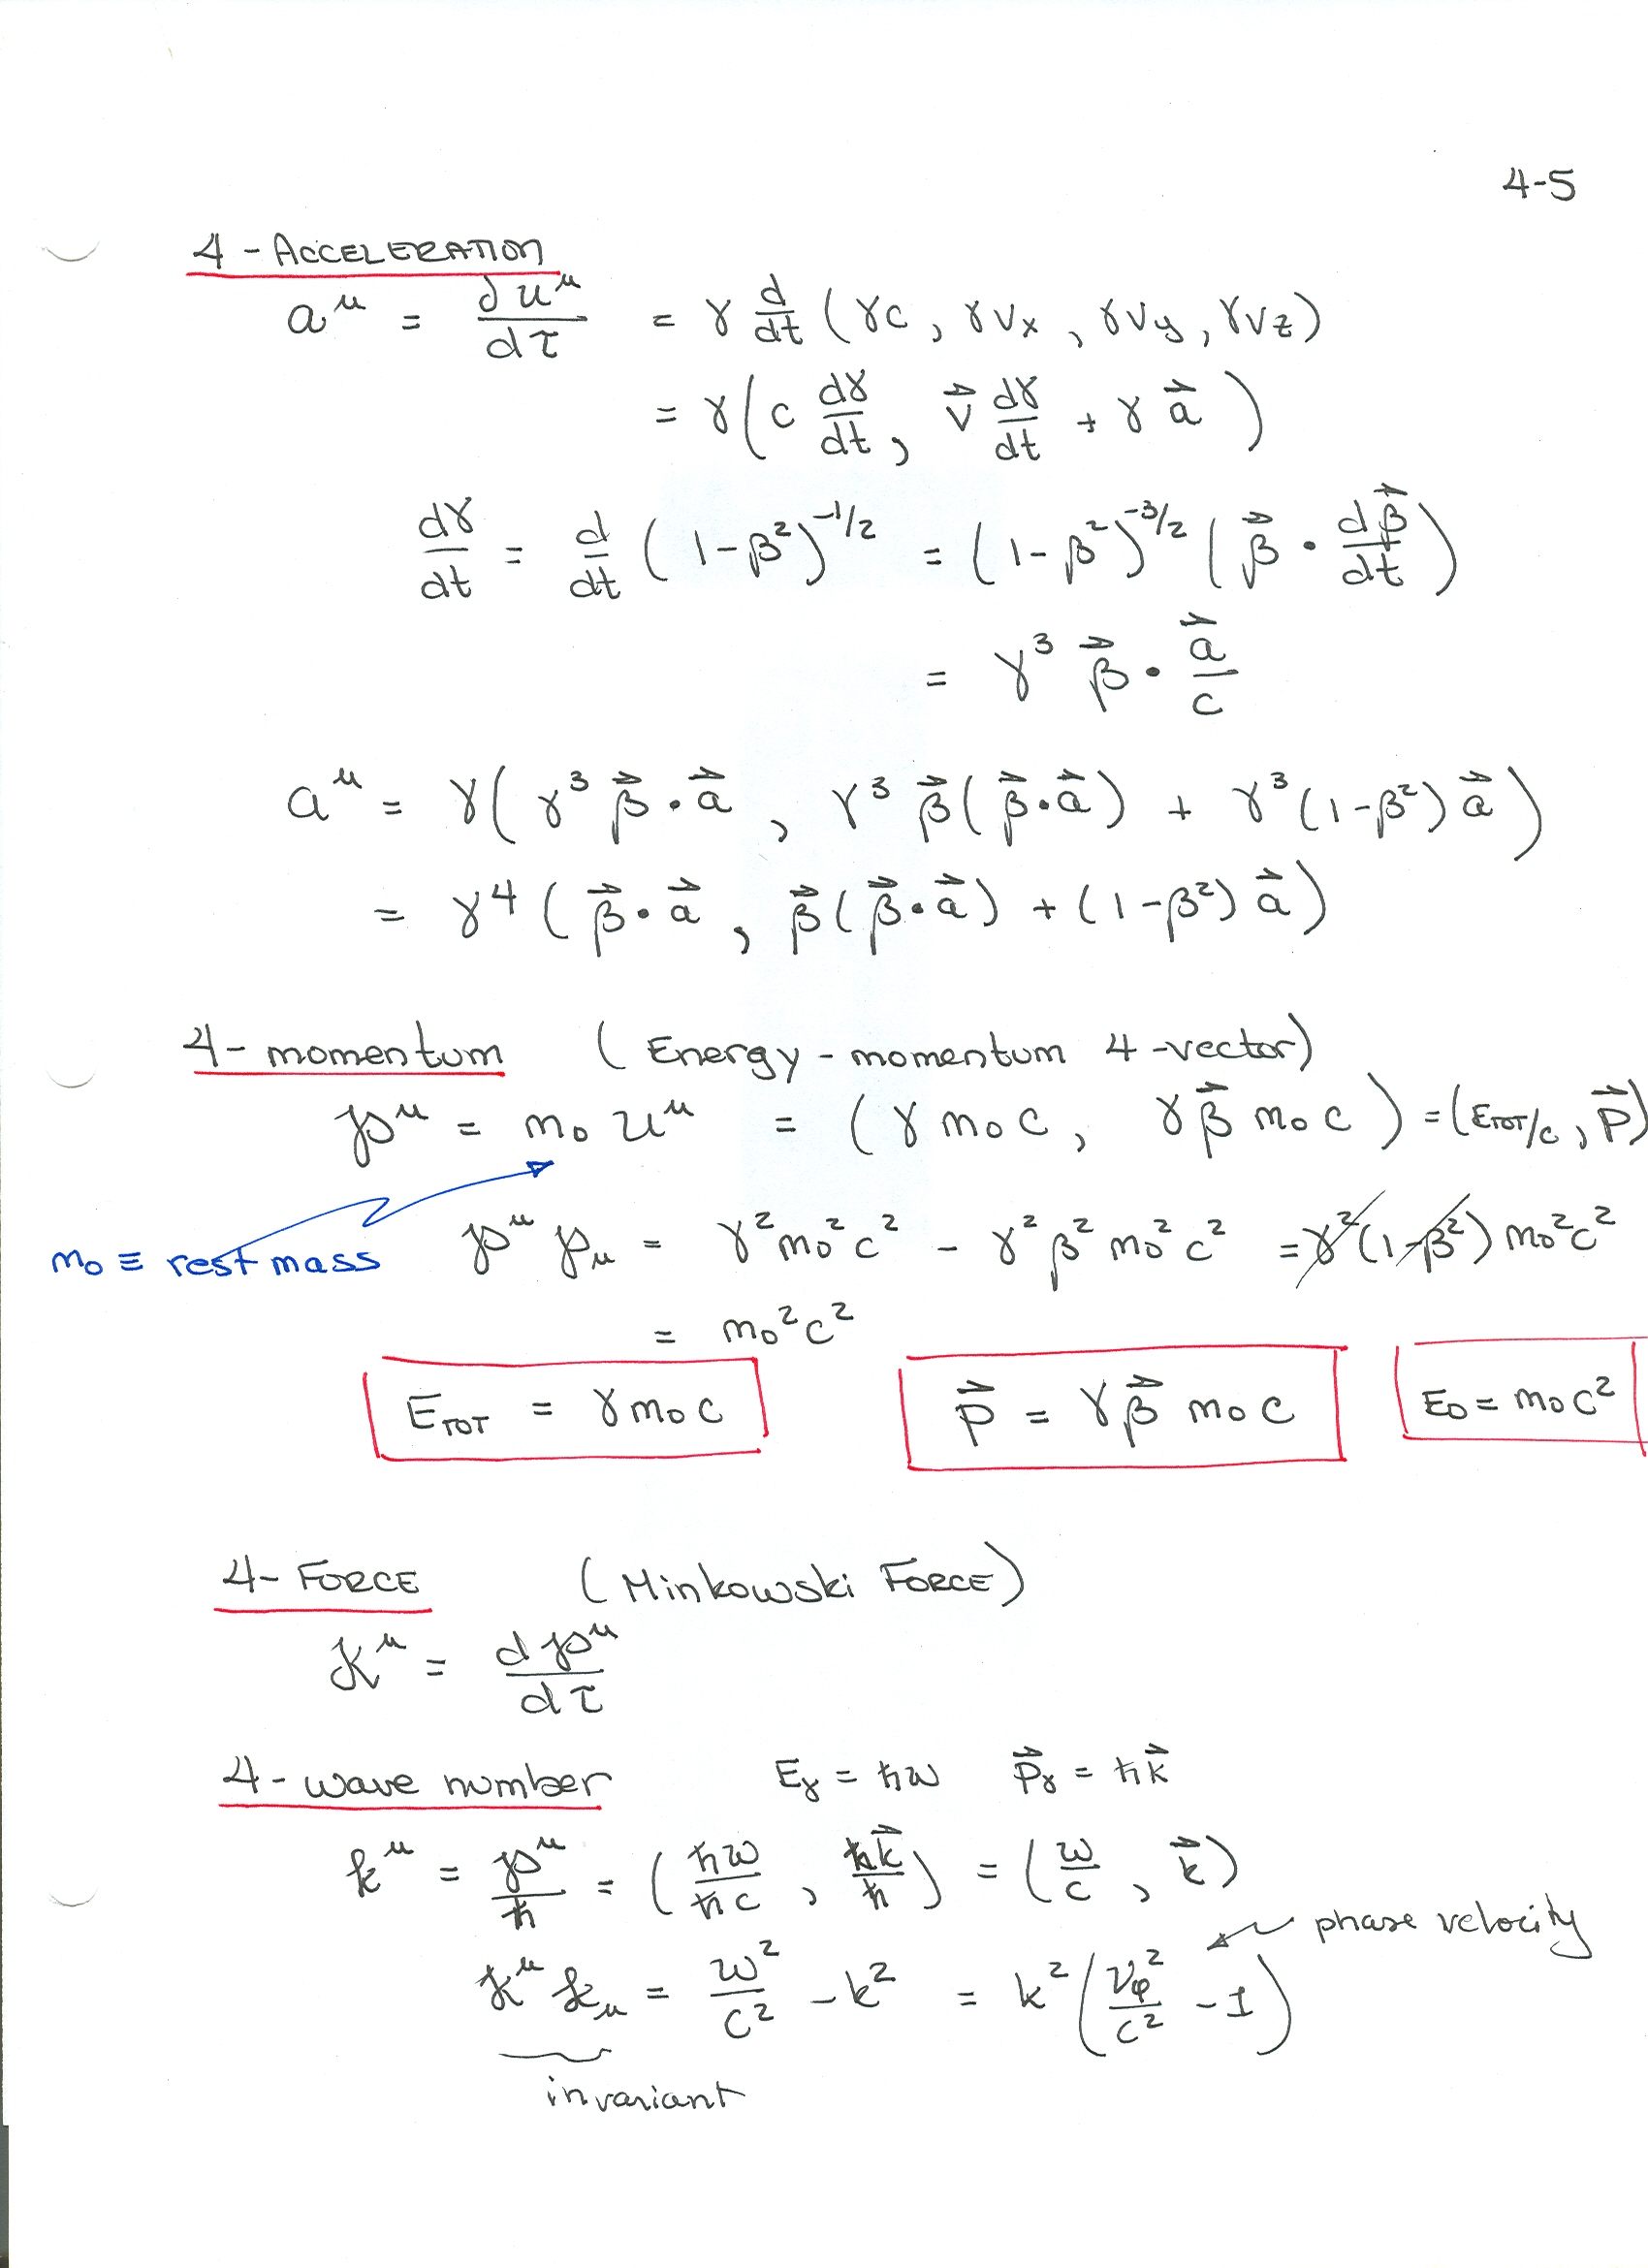 4-5
4 - ACCELERATION
a^μ = du^μ/dτ = γ d/dt (γc, γv_x, γv_y, γv_z)
= γ(c dγ/dt, v⃗ dγ/dt + γ a⃗)
dγ/dt = d/dt (1-β²)^{-1/2} = (1-β²)^{-3/2} (β⃗ · dβ⃗/dt)
= γ³ β⃗ · a⃗/c
a^μ = γ(γ³ β⃗·a⃗, γ³ β⃗(β⃗·a⃗) + γ³(1-β²) a⃗)
= γ⁴(β⃗·a⃗, β⃗(β⃗·a⃗) + (1-β²) a⃗)
4- momentum (Energy - momentum 4-vector)
p^μ = m₀ u^μ = (γ m₀ c, γ β⃗ m₀ c) = (E_TOT/c, P⃗)
m₀ ≡ rest mass
p^μ p_μ = γ² m₀² c² - γ² β² m₀² c² = γ²(1-β²) m₀² c²
= m₀² c²
E_TOT = γ m₀ c
P⃗ = γ β⃗ m₀ c
E₀ = m₀ c²
4- FORCE (Minkowski FORCE)
K^μ = dp^μ/dτ
4- wave number E_γ = ħω P⃗_γ = ħk⃗
k^μ = p^μ/ħ = (ħω/ħc, ħk⃗/ħ) = (ω/c, k⃗)
phase velocity
k^μ k_μ = ω²/c² - k² = k²(v_φ²/c² - 1)
invariant